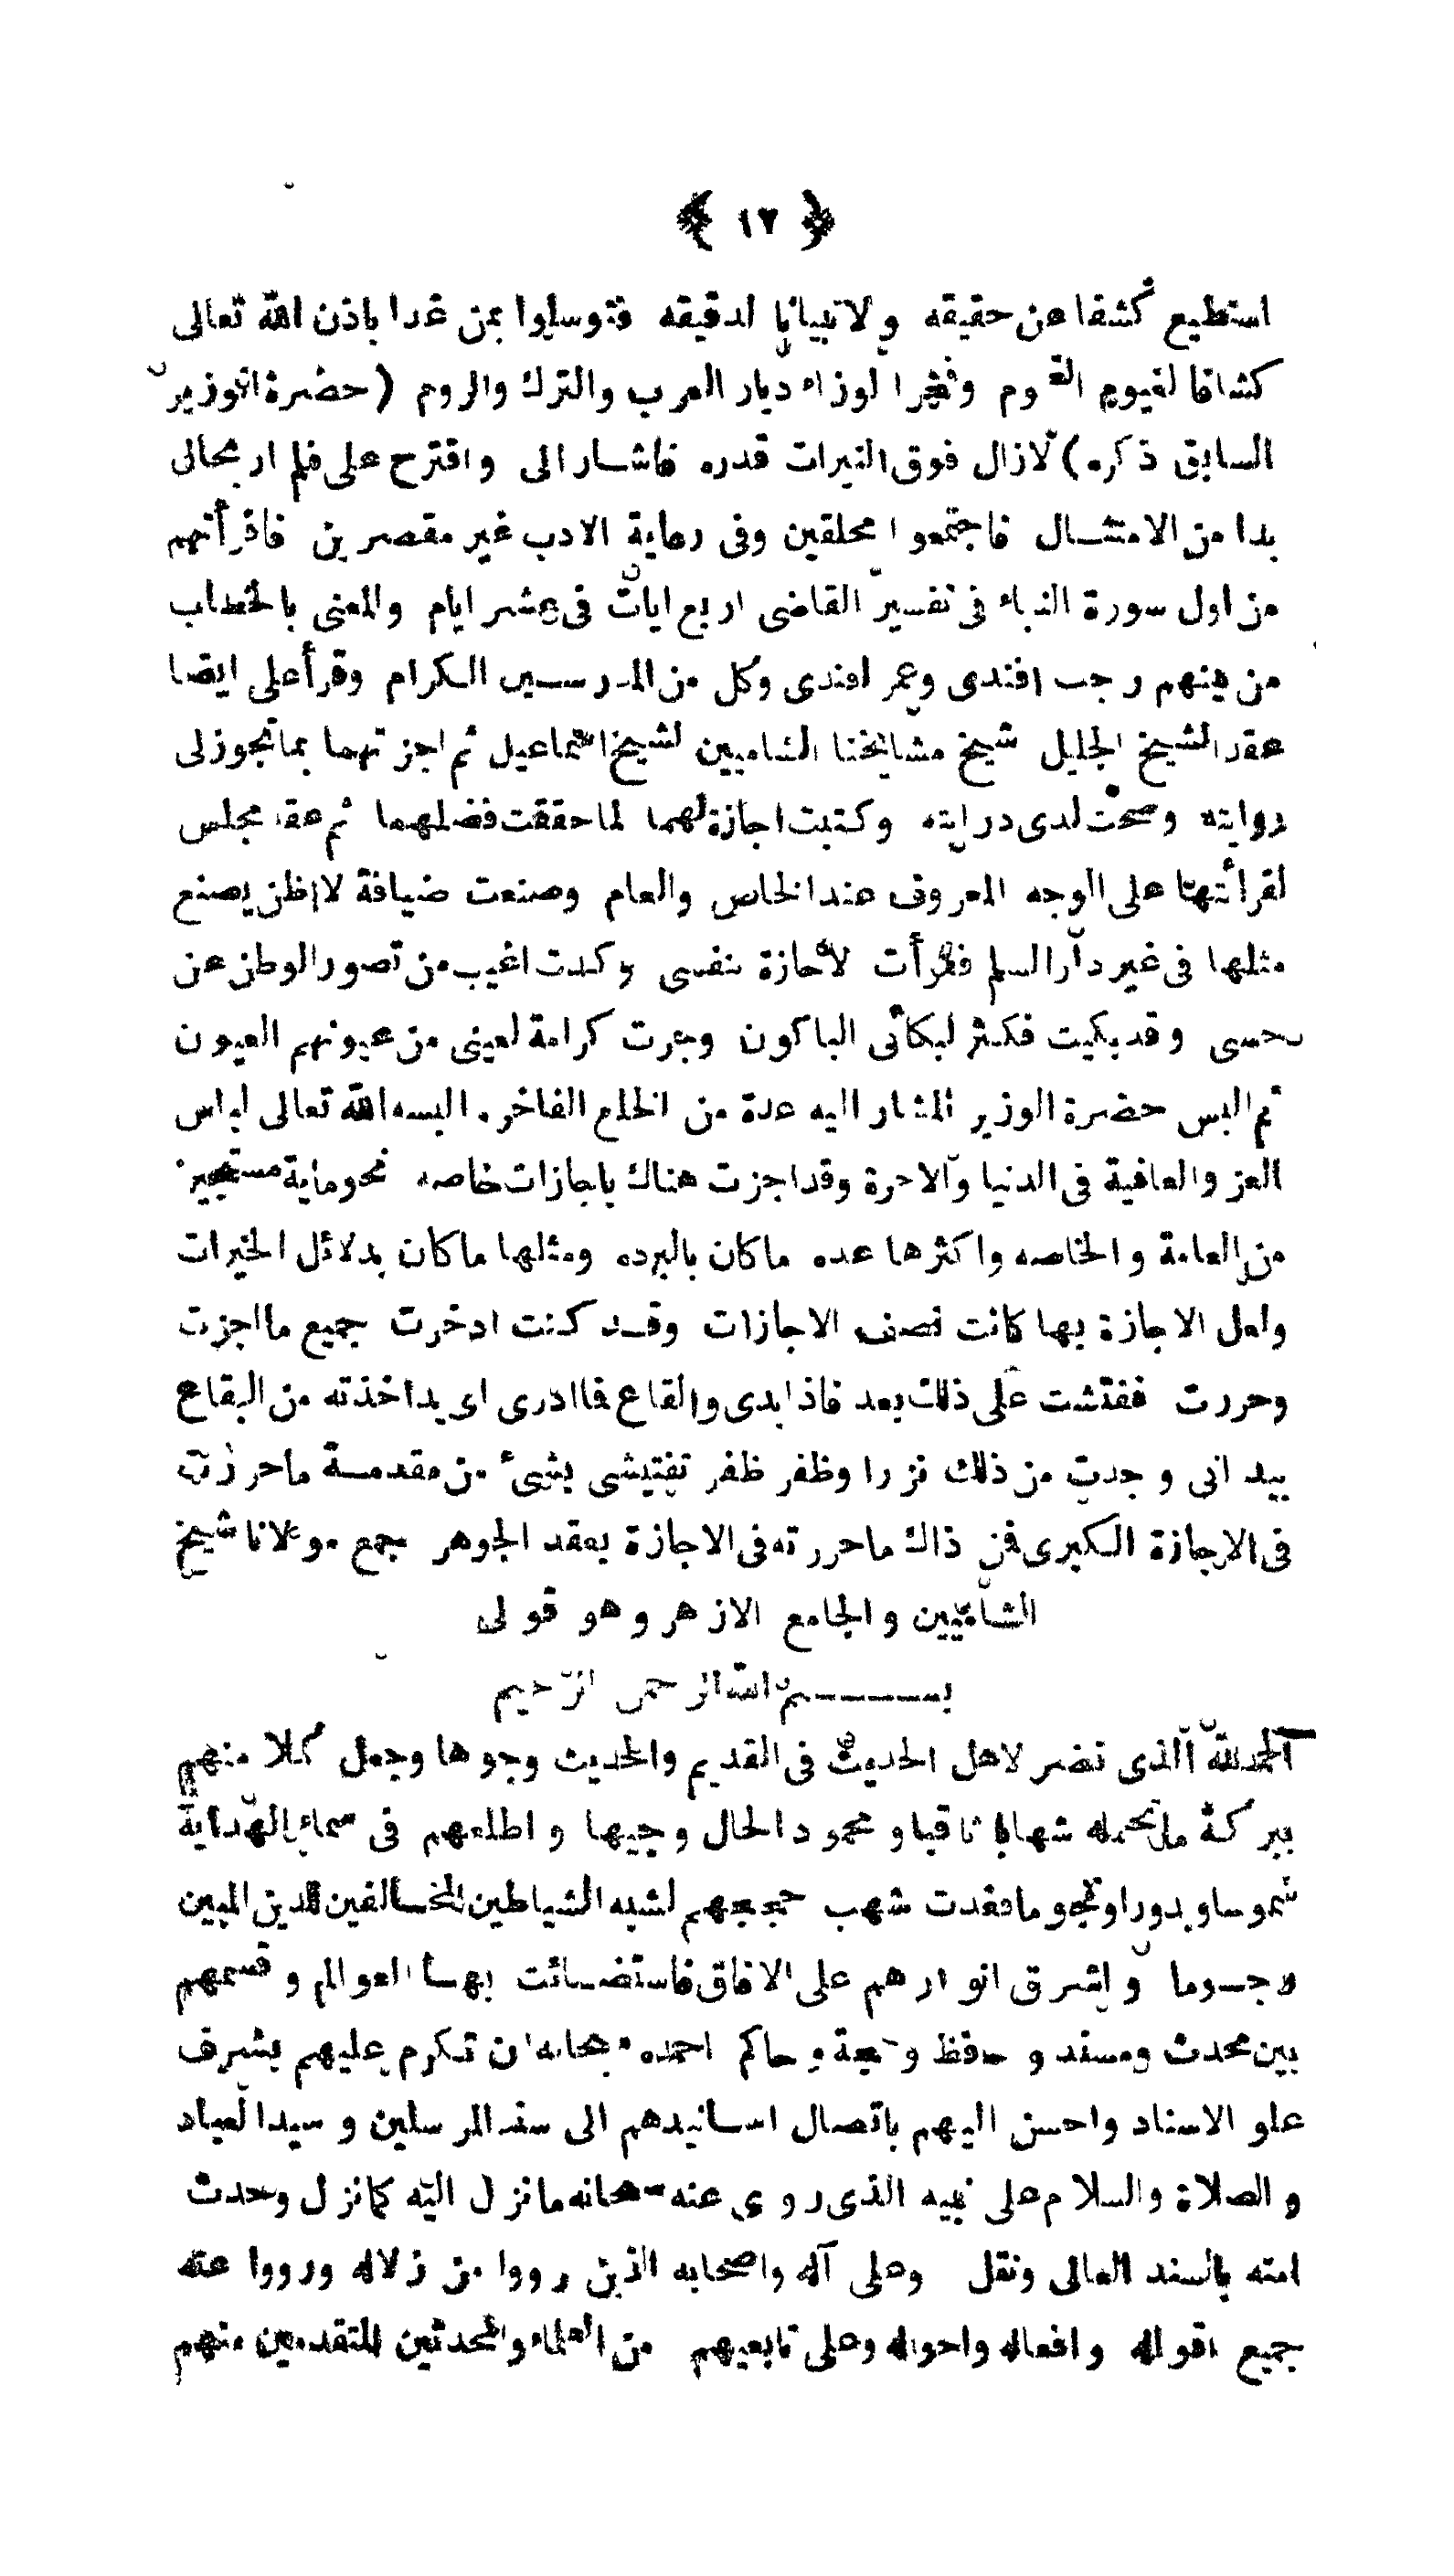 ﴿ ١٧ ﴾
استطيع كشفا عن حقيقه ولا تبيانا لدقيقه فتوسلوا بمن غدا باذن الله تعالى
كشافا لغيوم الغموم وفخرا لوزراء ديار العرب والترك والروم (حضرة الوزير
السابق ذكره) لازال فوق النيرات قدره فاشار الى واقترح على فلم ار بحالى
بدا من الامتثال فاجتمعوا محلقين وفى رعاية الادب غير مقصرين فاقرأتهم
من اول سورة النباء فى تفسير القاضى اربع ايات فى عشر ايام والمعنى بالخطاب
من بينهم رجب افندى وعمر افندى وكل من المدرسين الكرام وقرأ على ايضا
عقد الشيخ الجليل شيخ مشايخنا الشاميين الشيخ اسماعيل ثم اجزتهما بما تجوز لى
روايته وصحت لدى درايته وكتبت اجازة لهما لما حققت فضلهما ثم عقد مجلس
لقرأتها على الوجه المعروف عند الخاص والعام وصنعت ضيافة لا اظن يصنع
مثلها فى غير دار السلم فقرأت الاجازة بنفسى وكدت اغيب من تصور الوطن عن
حسى وقد بكيت فكثر لبكائى الباكون وجرت كرامة لعينى من عيونهم العيون
ثم البس حضرة الوزير المشار اليه عدة من الخلع الفاخره البسه الله تعالى لباس
العز والعافية فى الدنيا والاخرة وقد اجزت هناك باجازات خاصه نحو مأية مستجيز
من العامة والخاصه واكثرها عده ماكان بالبرده ومثلها ماكان بدلائل الخيرات
ولعل الاجازة بها كانت نصف الاجازات وقد كنت ادخرت جميع ما اجزت
وحررت ففتشت على ذلك بعد فاذا يدى والقاع فما ادرى اى يد اخذته من البقاع
بيد انى وجدت من ذلك نزرا وظفر ظفر تفتيشى بشئ من مقدمة ماحررت
فى الاجازة الكبرى فمن ذاك ماحررته فى الاجازة بعقد الجوهر جمع مولانا شيخ
الشاميين والجامع الازهر وهو قولى
بسم الله الرحمن الرحيم
الحمدلله الذى نضر لاهل الحديث فى القديم والحديث وجوها وجعل كلا منهم
ببركة ما تحمله شهابا ثاقبا ومحمود الحال وجيها واطلعهم فى سماء الهداية
شموسا وبدورا ونجوما فغدت شهب حججهم لشبه الشياطين المخالفين للدين المبين
رجوما واشرق انوارهم على الافاق فاستضائت بها العوالم وقسمهم
بين محدث ومسند وحافظ وحجة وحاكم احمده سبحانه ان تكرم عليهم بشرف
علو الاسناد واحسن اليهم باتصال اسانيدهم الى سند المرسلين وسيد العباد
والصلاة والسلام على نبيه الذى روى عنه سبحانه مانزل اليه كمانزل وحدث
امته بالسند العالى ونقل وعلى آله واصحابه الذين رووا من زلاله ورووا عنه
جميع اقواله وافعاله واحواله وعلى تابعيهم من العلماء والمحدثين المتقدمين منهم